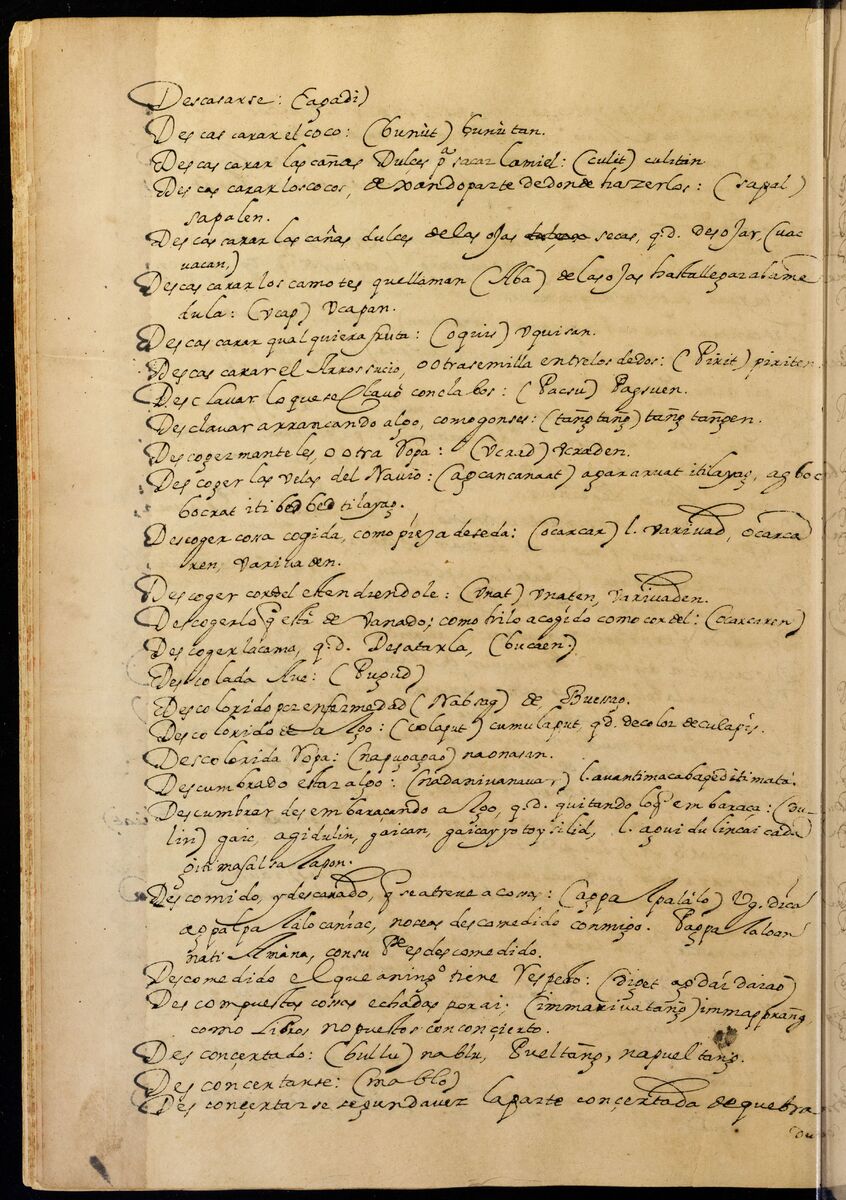 Descasarse: (agadi)
Descascarar el coco: (bunùt) bunùtan.
Descascarar las cañas Dulçes pª sacar la miel: (culit) culitin
Descascarar los cocos, dexando parte de donde haszerlos: (sapal)
sapalen.
Descascarar las cañas dulces de las ojas secas, q.d. desojar, (uac
uacan,)
Descascarar los camotes que llaman (Aba) de las ojas hasta llegar a la me
dula: (vcap) vcapan.
Descascarar qualquiera fruta: (oquis) vquisan.
Descascarar el Arros sucio, o otra semilla entre los dedos: (Pirit) piriten
Desclavar lo que se clauò con clabos: (Pacsu) Pagsuen.
Desclavar arrancando algo, como gonses: (tang̃tang̃) tang̃tang̃en.
Descoger manteles, o otra Ropa: (vcrad) vcraden.
Descoger las velas del Nauio: (agcancanaat) agararuat iti layag, agboc
bocrat iti bedbed ti layag.
Descoger cosa cogida, como pieza de seda: (ocarcar) l. varivad, ocarca
ren, varivaden.
Descoger cordel estendiendole: (vnat) vnaten, varivaden.
Descogerlo q̃ està de vanado; como hilo a cogido como cordel: (ocarcaren)
Descoger la cama, q.d. Desatarla, (bucaen.)
Descolada Aue: (Pugud)
Descolorido por enfermedad (Nabsag) de, Buessag.
Descolorido de algo: (colaput) cumulaput, q.d. de color de culapis.
Descolorida Ropa: (napugapag) naonasan.
Descumbrado estar algo: (nadanivanavar) l. avanti macabaged iti mata.
Descumbrar desembaraçando algo, q.d. quitando lo q̃ embaraça: (Du-
lin) gaic, agidulin, gaican, gaicayyo toy silid, l. agui dulincai cada
giti masalsalapon.
Descomido, y descarado, q̃ se atreve a cosas: (agpalpalàlo) Vg. dica
agpalpalalo caniac, no ceas descomedido conmigo. Pagpalaloan
nati Amàna, con su Pe es descomedido.
Descomedido el que a ningº tiene Respeto: (diget agdaidaiao)
Descompuestas cosas echadas por ai: (immarivatang̃) immasprang̃
como Libros no puestos con conçierto.
Desconçertado: (bullu) nablu, Pueltang̃, napueltang̃.
Desconcertarse: (mablo)
Desconçertarse segunda vez la parte conçertada de quebra
du